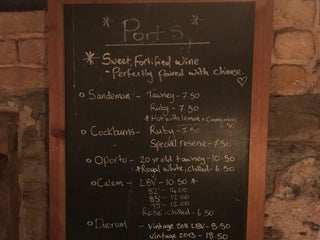 * Ports *
* Sweet, Fortified wine
- Perfectly paired with cheese
Sandeman - Tawney - 7.50
Ruby - 7.50
* Hot with lemon + cinnamon 6.50
Cockburns - Ruby - 7.50
Special reserve - 7.50
Oporto - 20 yr old tawney - 10.50
* Royal white, chilled - 6.50
Calem - LBV - 10.50 *
82' - 14.00
85' - 12.00
95' - 12.00
Rosé, chilled - 6.50
Ducrum - Vintage LBV - 8.50
Vintage 2013 - 18.50